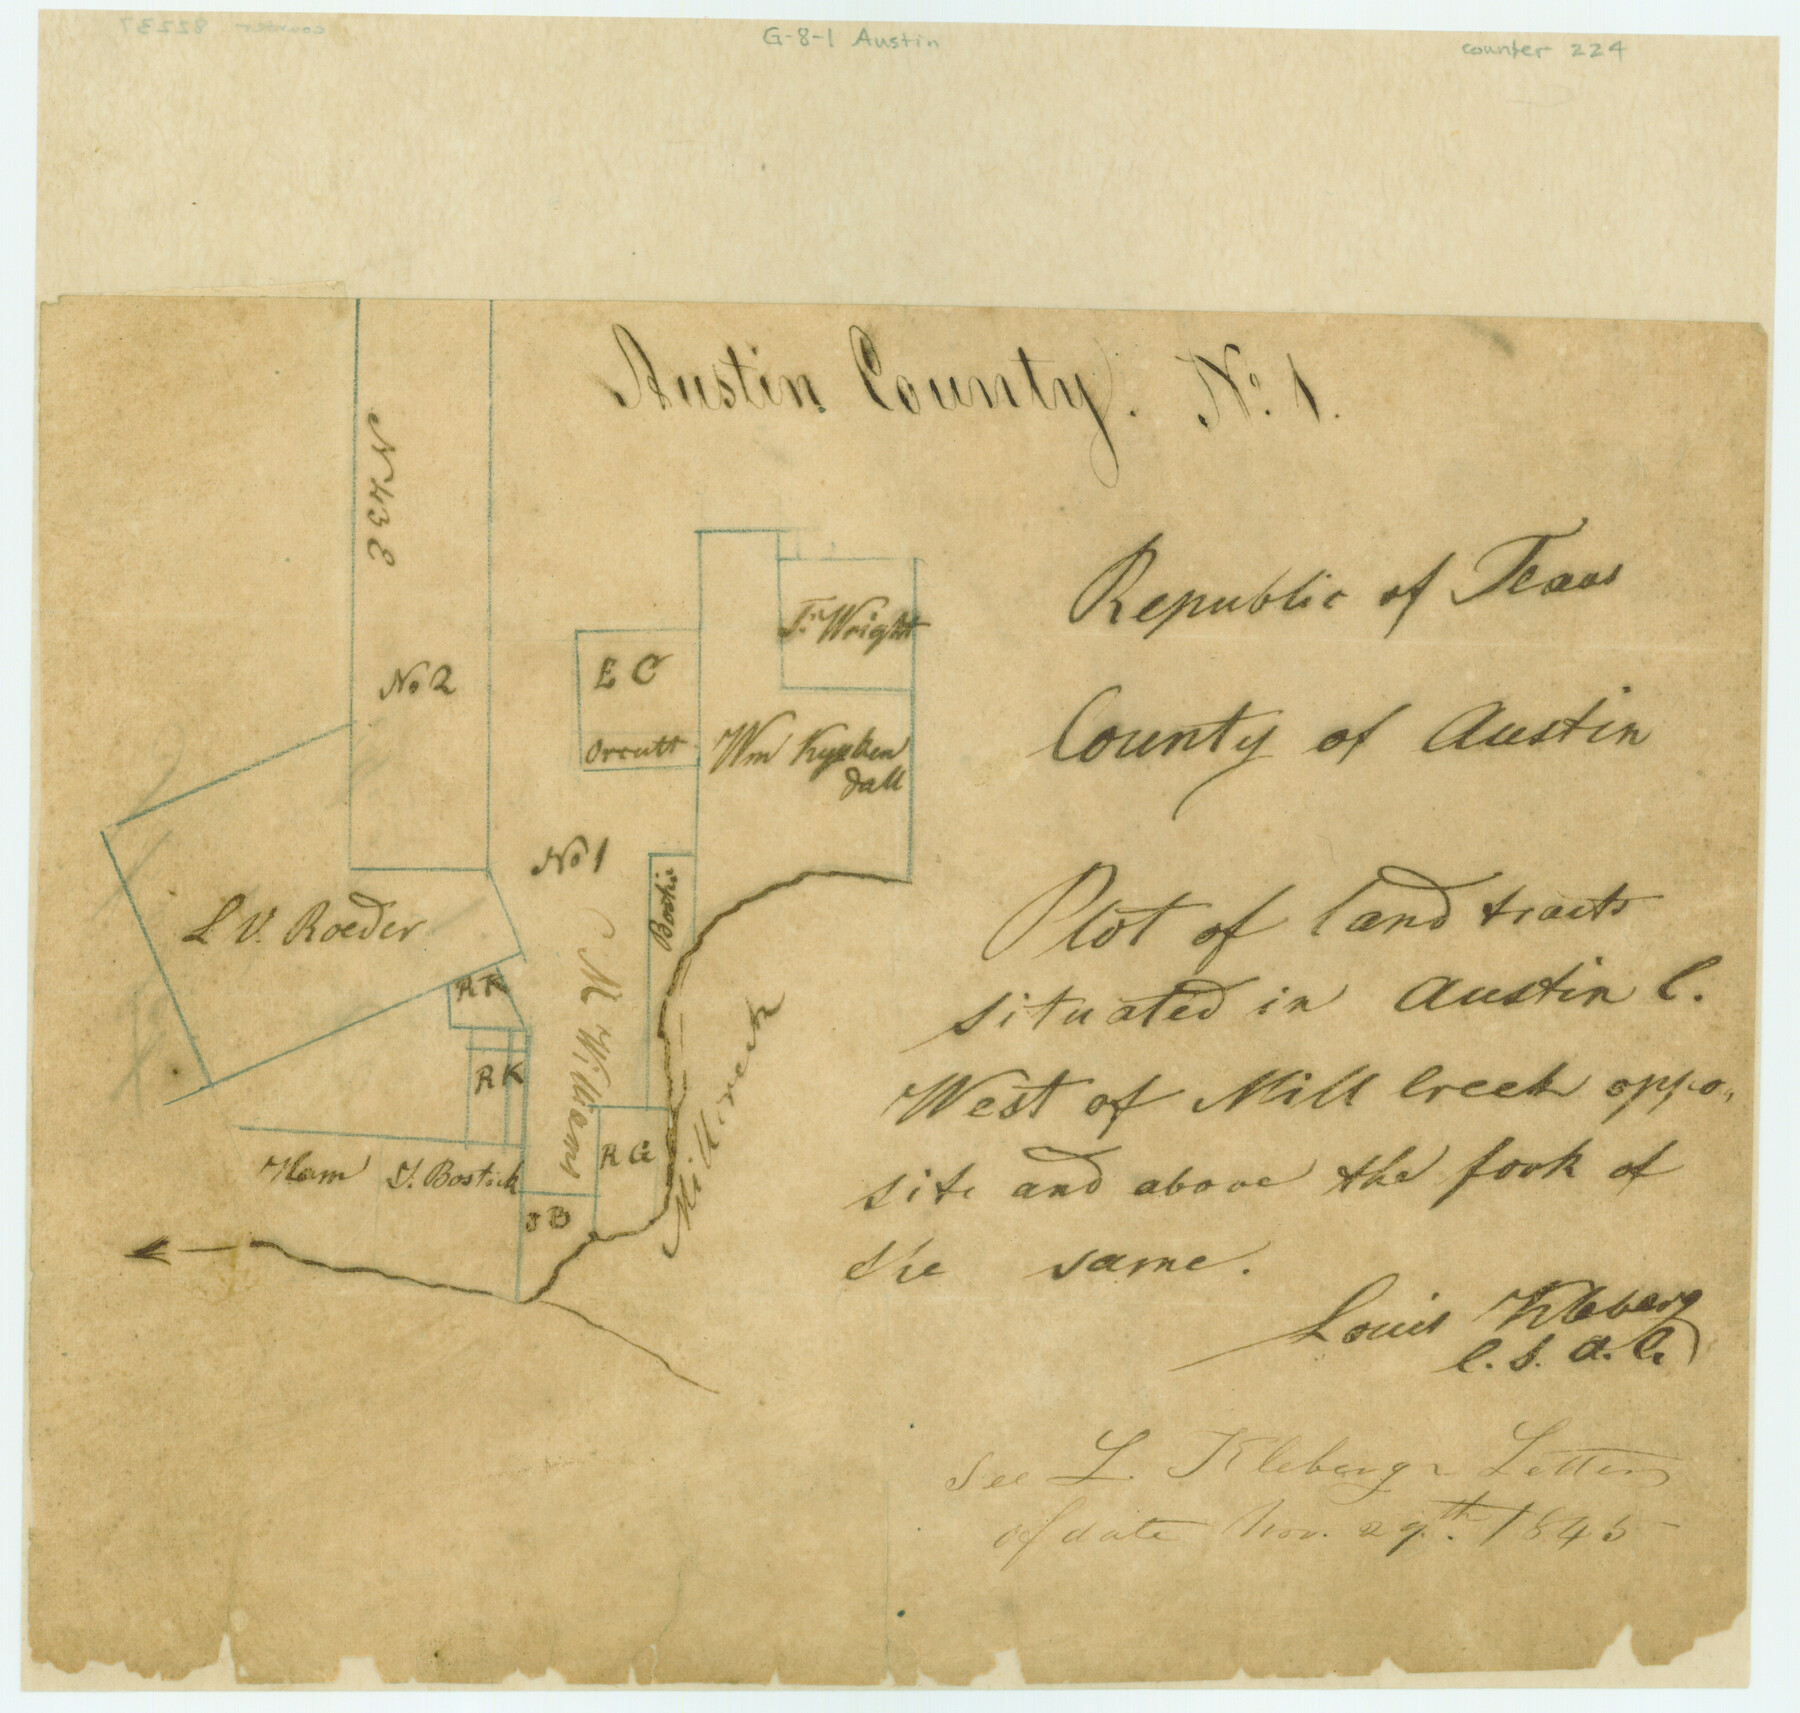 counter 82237
G-8-1 Austin
counter 224
Austin County. No. 1.
N 432
No 2
E C
Orcutt
Jn Wright
Wm Kyrken
dall
No 1
L V. Roeder
R K
R K
M Williams
R G
Mill creek
Ham
S. Bostick
J B
Republic of Texas
County of Austin
Plot of land tracts
situated in Austin C.
West of Mill Creek oppo,
site and above the fork of
the same.
Louis Kleberg
C. S. A. C.
See L. Klebergs Letter
of date Nov. 29.th 1845